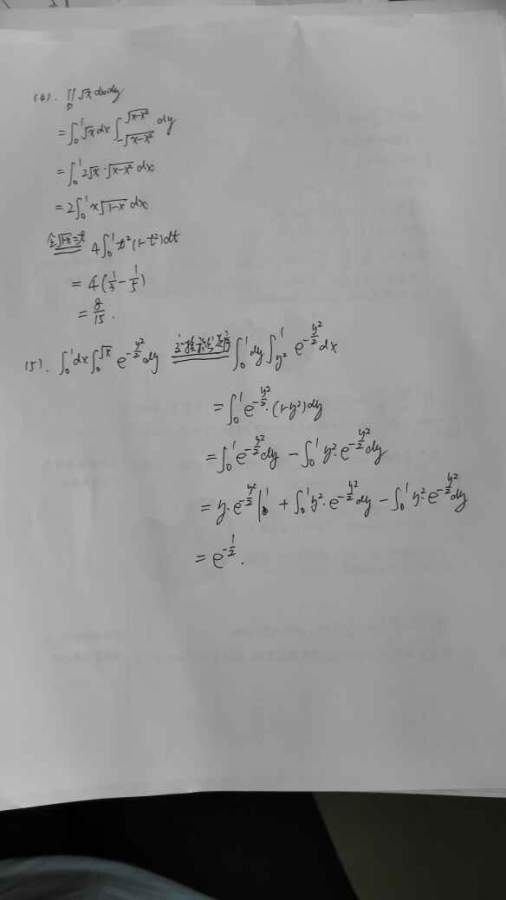 (4). ∬_D √x dxdy
= ∫₀¹ √x dx ∫_{-√(x-x²)}^{√(x-x²)} dy
= ∫₀¹ 2√x · √(x-x²) dx
= 2∫₀¹ x√(1-x) dx
令√(1-x)=t 4∫₀¹ t²(1-t²)dt
= 4(1/3 - 1/5)
= 8/15.
(5). ∫₀¹dx∫₀^{√x} e^{-y²/2} dy 交换积分次序 ∫₀¹dy∫_{y²}^1 e^{-y²/2} dx
= ∫₀¹ e^{-y²/2}·(1-y²)dy
= ∫₀¹ e^{-y²/2}dy - ∫₀¹ y²·e^{-y²/2}dy
= y·e^{-y²/2}|₀¹ + ∫₀¹ y²·e^{-y²/2}dy - ∫₀¹ y²·e^{-y²/2}dy
= e^{-1/2}.